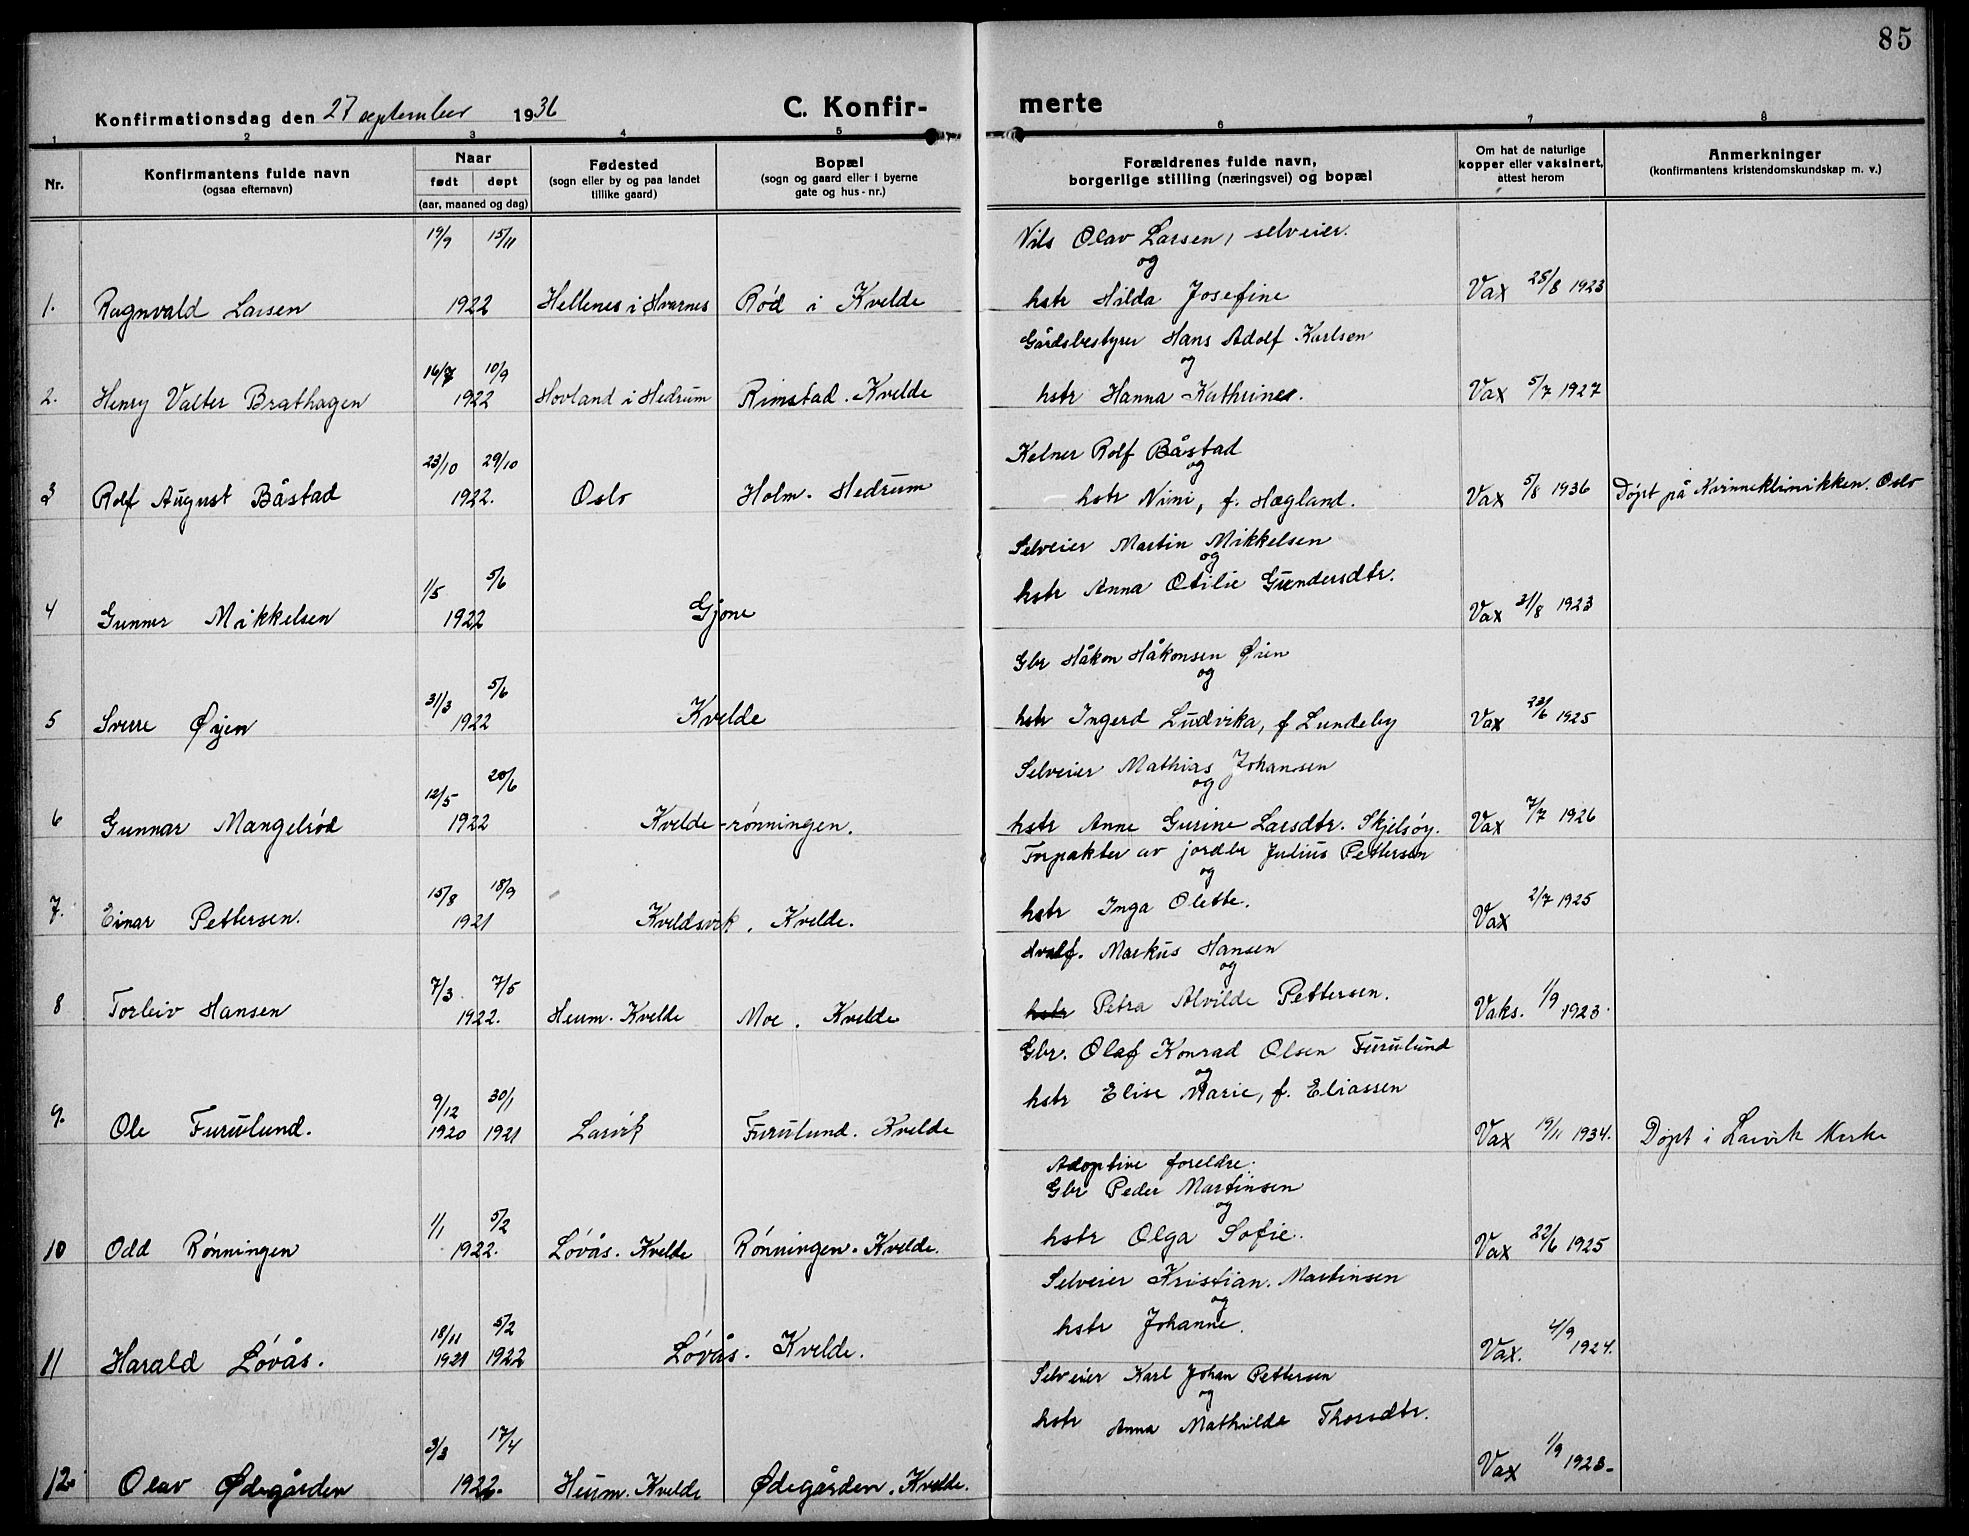 85
Konfirmationsdag den 27 september 1936
C. Konfir-
merte
1 2 3 4 5 6 7 8
Nr.
Konfirmantens fulde navn
(ogsaa efternavn)
Naar
født døpt
(aar, maaned og dag)
Fødested
(sogn eller by og paa landet
tillike gaard)
Bopæl
(sogn og gaard eller i byerne
gate og hus-nr.)
Forældrenes fulde navn,
borgerlige stilling (næringsvei) og bopæl
Om hat de naturlige
kopper eller vaksinert,
attest herom
Anmerkninger
(konfirmantens kristendomskundskap m. v.)
19/9 15/11 Nils Olav Larsen, selveier.
og
1. Ragnvald Larsen 1922 Hellenes i Hvarnes Rød i Kvelde hstr Hilda Josefine Vax 25/8 1923
Gårdsbestyrer Hans Adolf Karlsen
16/7 10/9 og
2. Henry Valter Brathagen 1922 Hovland i Hedrum Rimstad. Kvelde hstr Hanna Kathrine. Vax 5/7 1927
23/10 29/10 Kelner Rolf Båstad
og
3 Rolf August Båstad 1922. Oslo Holm. Hedrum hstr Nini, f. Hægland. Vax 5/8 1936 Døpt på Kvinneklinikken. Oslo
Selveier Martin Mikkelsen
og
1/5 5/6 hstr Anna Otilie Gundersdtr.
4 Gunnar Mikkelsen 1922 Gjone Vax 31/8 1923
Gbr Håkon Håkonsen Øien
31/3 5/6 og
5 Sverre Øyen 1922 Kvelde hstr Ingerd Ludvika, f Lundeby Vax 23/6 1925
Selveier Mathias Johansen
12/5 20/6 og
6 Gunnar Mangelrød 1922 Kvelde-rønningen. hstr Anne Gurine Larsdtr. Skjelsøy. Vax 7/7 1926
Forpakter av jordbr Julius Pettersen
15/8 18/9 og
7. Einar Pettersen. 1921 Kveldsvik, Kvelde. hstr Inga Olette. Vax 2/7 1925
Markus Hansen
7/3. 7/5 og
8 Torleiv Hansen 1922. Heum. Kvelde Moe. Kvelde hstr Petra Alvilde Pettersen. Vaks. 1/9 1923.
Gbr. Olaf Konrad Olsen Furulund
og
9/12 30/1 hstr Elise Marie, f. Eliassen
9. Ole Furulund. 1920 1921 Larvik Furulund. Kvelde Vax 19/11 1934. Døpt i Larvik kirke
Adoptive foreldre.
Gbr Peder Martinsen
1/1 5/2 og
10 Odd Rønningen 1922. Løvås. Kvelde Rønningen. Kvelde. hstr Olga Sofie. Vax 22/6 1925
Selveier Kristian. Martinsen
18/11 5/2 og
11 Harald Løvås. 1921 1922 Løvås. Kvelde. hstr Johanne. Vax. 4/9 1924.
Selveier Karl Johan Pettersen
og
3/3 17/4 hstr Anna Mathilde Thorsdtr.
12. Olav Ødegården 1922. Heum. Kvelde Ødegården. Kvelde. Vax 1/9 1923.